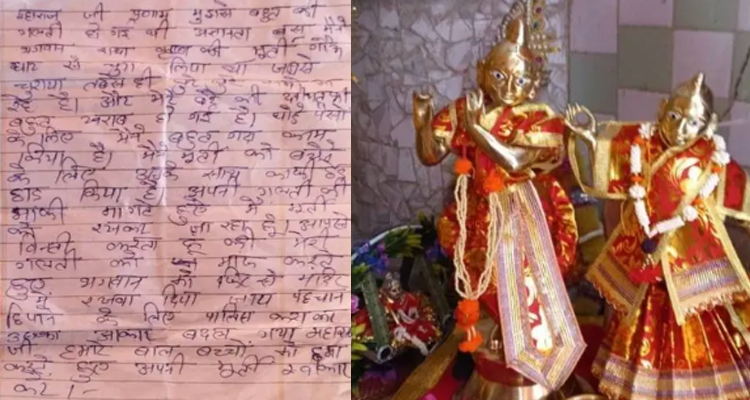 महाराज जी प्रणाम मुझसे बहुत बडी
गलती हो गई थी अज्ञानता बस मैंने
भगवान राधा कृष्ण की मूर्ती गौघाट
से चुरा लिया था जबसे
चुराया तबसे ही
है। और मेरे बेटे की भी तबीयत
बहुत खराब हो गई है। थोडे पैसों
के लिए मैंने बहुत गंदा काम
किया है। मैंने मूर्ती को बेचने
के लिए उसके साथ काफी छेड
छाड किया है अपनी गलती की
माफी मांगते हुए मै मूर्ती
को रखकर जा रहा हूँ। आपसे
विनती करता हूं की मेरी
गलती को माफ करते
हुए भगवान को फिर से मंदिर
में रखवा दिया जाय पहचान
छिपाने के लिए पालिस कराकर
उसका आकार बदल गया महाराज
जी हमारे बाल बच्चो को क्षमा
करते हुए अपनी मूर्ती स्वीकार
करें।-